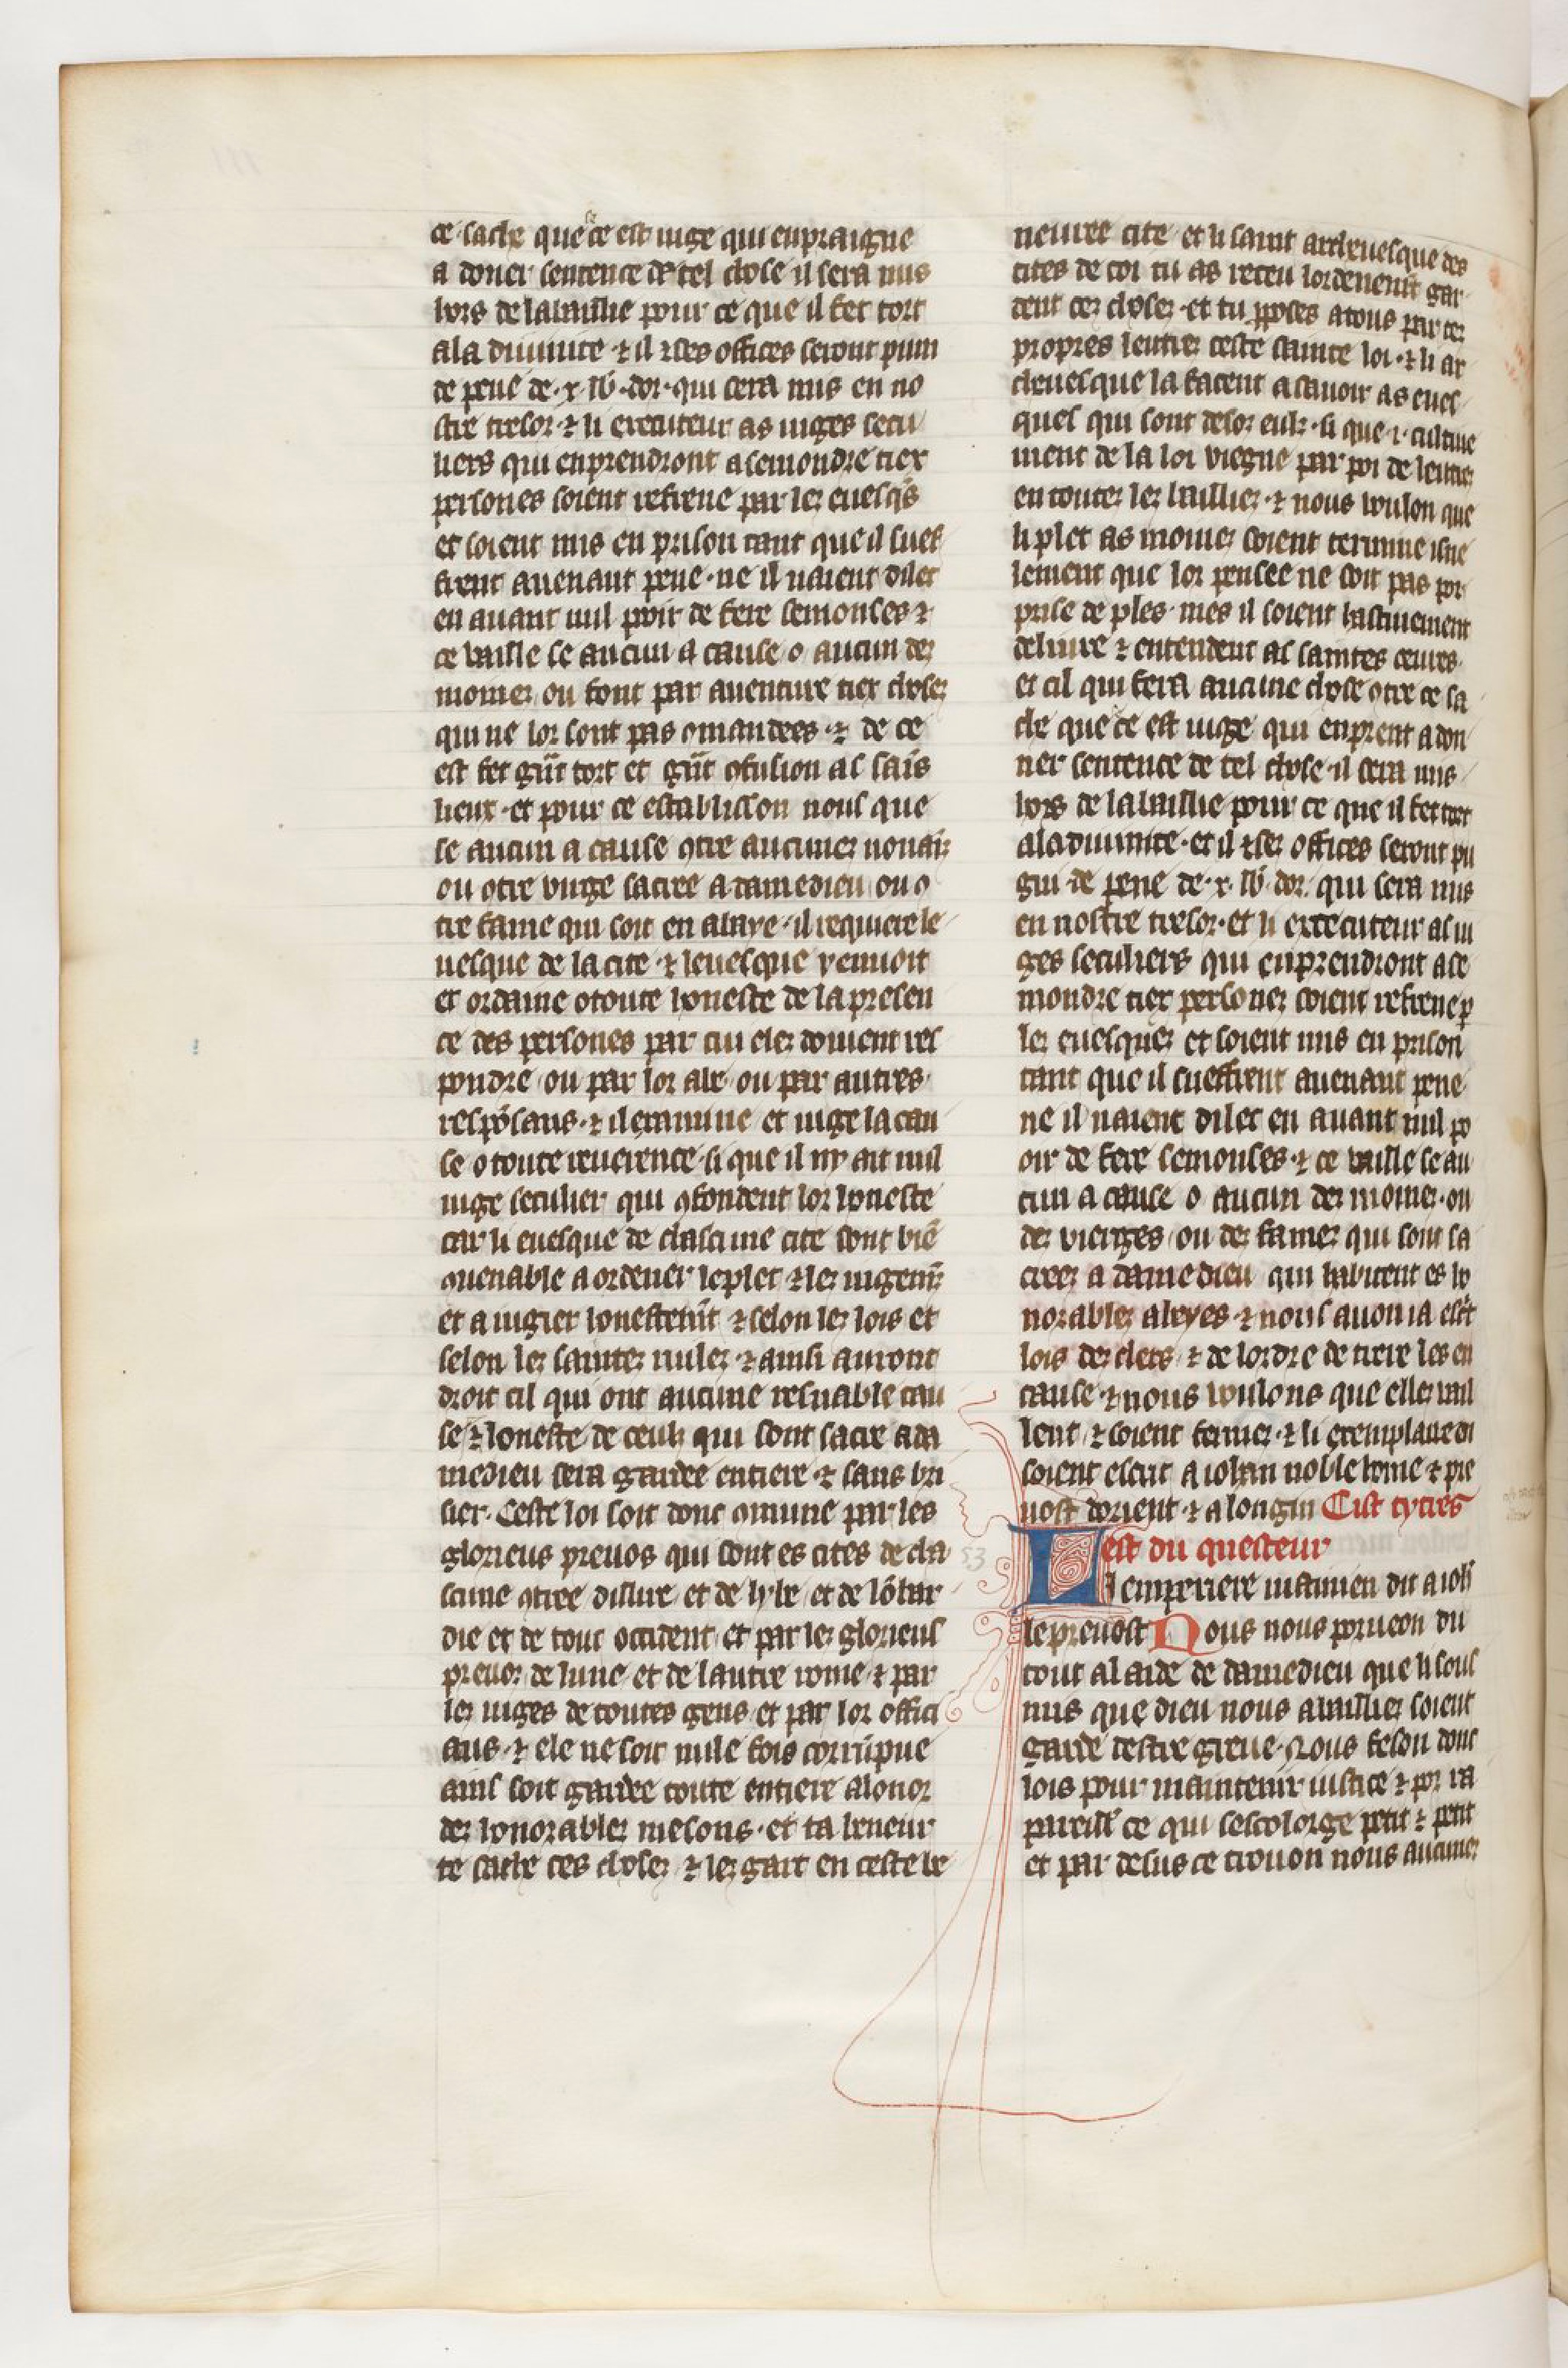 ce sache que se ce est iuge qui enpraigne
a doner sentence de tel chose il sera mis
hors de la baillie pour ce que il fet tort
a la diuinite ⁊ il ⁊ ses offices seront puni
de peine de .x. lb. dor. qui sera mis en no
stre tresor ⁊ li executeur as iuges secu
liers qui enprendront a semondre tiex
persones soient refrene par les euesqs
et soient mis en prison tant que il suef
frent auenant peine. ne il naient dilec
en auant nul poir de fere semonses ⁊
ce vaille se aucun a cause o aucun des
moines ou font par auenture tiex choses
qui ne lor sont pas 9mandees. ⁊ de ce
est fet gnt tort et gnt 9fusion as sais
lieux. et pour ce establisson nous que
se aucun a cause 9tre aucunes nonais
ou 9tre virge sacree a damedieu ou 9
tre fame qui soit en abaye. il requiere le
uesque de la cite. ⁊ leuesque y enuoit
et ordaine o toute honeste de la presen
ce des persones par cui eles doiuent res
pondre ou par lor abe ou par autres
respōsaus. ⁊ il examine et iuge la cau
se o toute reuerence si que il ny ait nul
iuge seculier qui 9fondent lor honeste
car li euesque de chascune cite sont biē
9uenable a ordener le plet ⁊ les iugemz
et a iugier honestemt ⁊ selon les lois et
selon les saintes riules ⁊ ainsi auront
droit cil qui ont aucune resnable cau
se ⁊ loneste de ceuls qui sont sacre a da
medieu sera gardee entiere ⁊ sans bri
sier. Ceste loi soit donc 9mune par les
glorieus preuos qui sont es cites de cha
scune 9tree dillire et de lybe et de lōbar
die et de tout occident et par les glorieus
preuoz de lune et de lautre rome ⁊ par
les iuges de toutes gens et par lor offici
aus. ⁊ ele ne soit nule fois corrūpue
ains soit gardee toute entiere a lonor
des honorables mesons. et ta beneur
te sache ces choses ⁊ les gart en ceste be
neuree cite et li saint archeuesque des
cites de coi tu as receu lordenemt gar
dent ces choses. et tu pposes a tous par tes
propres lentres ceste sainte loi. ⁊ li ar
cheuesque la facent a sauoir as eues
ques qui sont desoz euls. si que .i. cultiue
ment de la loi viegne par poi de lentres
en toutes les baillies. ⁊ nous voulon que
li plet as moines soient termine isne
lement que lor pensee ne soit pas por
prise de ples. mes il soient hastiuement
deliure ⁊ entendent as saintes œures.
et cil qui fera aucune chose 9tre ce sa
che que ce est iuge qui enprent a don
ner sentence de tel chose. il sera mis
hors de la baillie pour ce que il fet tort
a la diuinite. et il ⁊ ses offices seront pu
gni de peine de .x. lb. dor. qui sera mis
en nostre tresor. et li executeur as iu
ges seculiers qui enprendront a se
mondre tiex persones soient refrene p
les euesques et soient mis en prison
tant que il sueffrent auenant peine
ne il naient dilec en auant nul po
oir de fere semonses. ⁊ ce vaille se au
cun a cause o aucun des moines. ou
des vierges ou des fames qui sont sa
crees a damedieu qui habitent es ho
norables abeyes ⁊ nous auon ia escrit
lois des clers ⁊ de lordre de trere les en
cause ⁊ nous voulons que elles vail
lent ⁊ soient fermes. ⁊ li exemplaire
soient escrit a iohan noble home ⁊ pre
uost dorient ⁊ a longin Cist tytres
est du questeur
53
Li emperiere iustinien dit a ioh
le preuost Nous nous porueon du
tout a laide de damedieu que li sous
mis que dieu nous a bailliez soient
garde destre greue. Nous feson donc
lois pour maintenir iustice ⁊ por ra
pareill ce qui sescolorge petit ⁊ petit
et par desus ce trouon nous aucunes